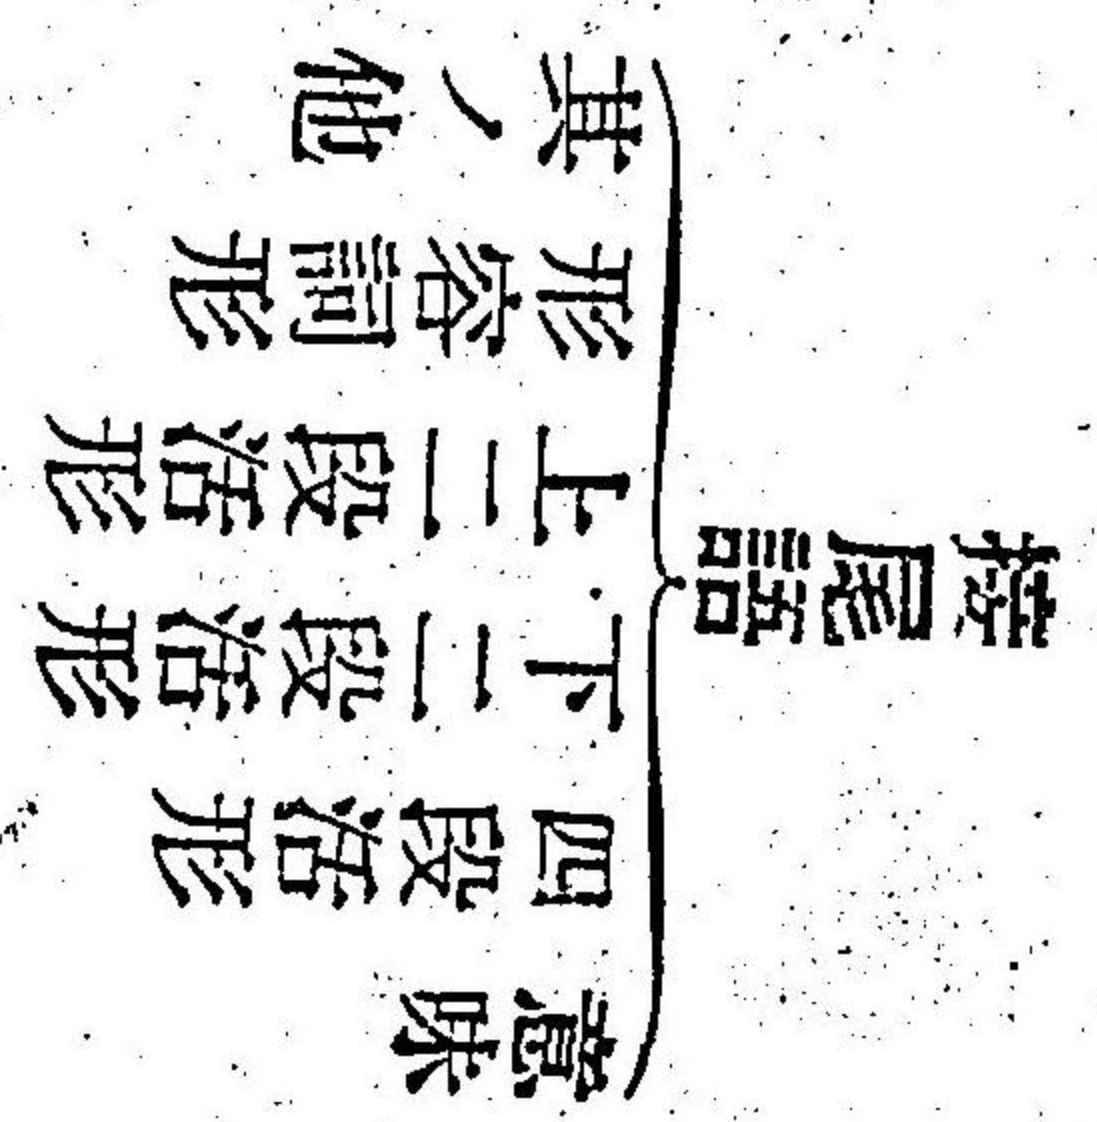 接尾語
意味
四段活形
下二段活形
上二段活形
形容詞形
其ノ他